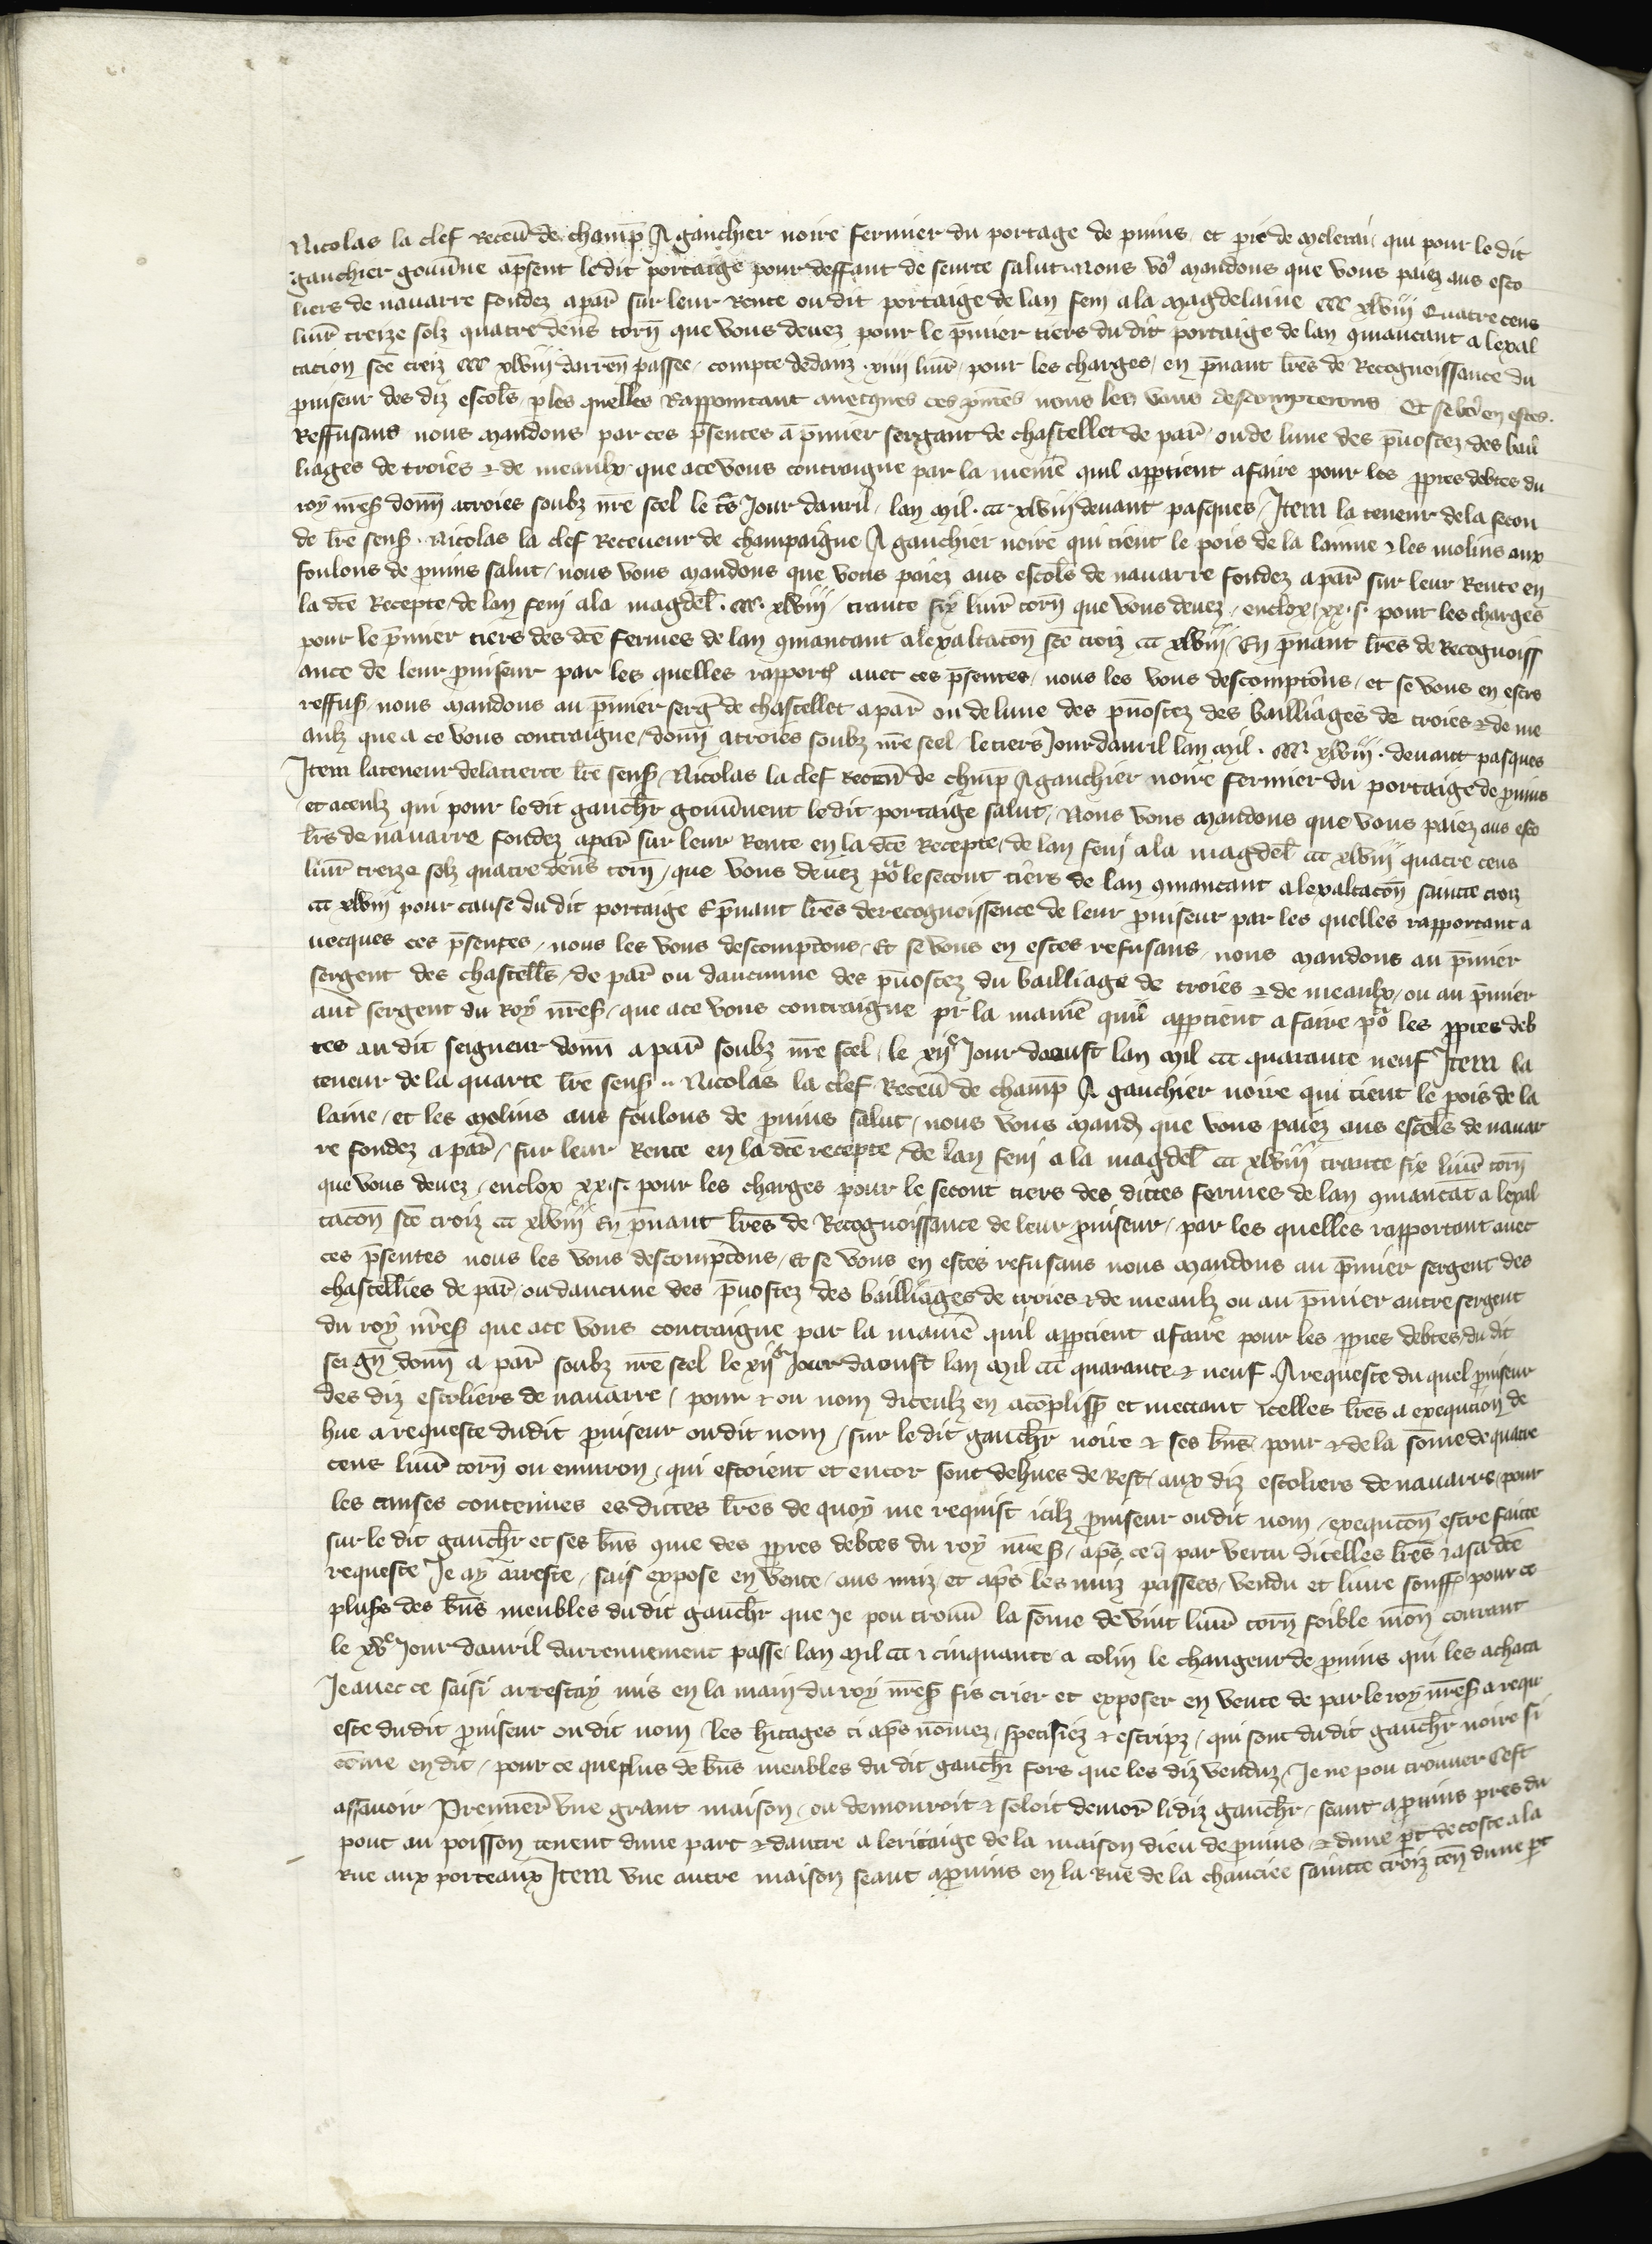 Nicolas la clef Receu̅ de champ̅ A gauchier noire fermier du portage de prouins et pie̅ de qui pour le dit
gauchier gouu̅ne ap̅sent le dit portaige pour deffaut de seurte salut nous vo9 mandons que vous paiez aus esco
liers de nauarre fondez a par̅ sur leur Rente ou dit portaige de lan feni a la magdelaine ccc xlviii Quatre cens
liur̅ treize solz quatre den̅s torn̅ que vous deuez pour le p̅mier tiers du dit portaige de lan 9mancant a lexal
tacion sce̅ croiz ccc xlviii darren̅ passee compte dedanz xiiii liur̅ pour les charges en p̅nant lr̅es de Recognoissance du
prouiseur des diz escol̅s p les quelles Rapportant auecques ces p̅ntes nous les vous descompterons Et se vo9 en estes
Reffusans nous mandons par ces p̅sentes a p̅mier sergant de chastellet de par̅ ou de lune des p̅uostez des bail
liages de troies & de meaulx que a ce vous contraigne par la menie̅ quil app̅tient a faire pour les ppres debtes du
roy nr̅es̅ donn̅ a troies soubz nr̅e seel le t̅s Jour dauril lan mil ccc xlviii deuant pasques Item la teneur de la secon
de lr̅e sens̅ Nicolas la clef Receueur de champaigne A gauchier noire qui tient le pois de la lanne & les molins aux
foulons de prouins salut nous vous mandons que vous paiez aus escol̅s de nauarre fondez a par̅ sur leur Rente en
la dce̅ Recepte de lan feni a la magdel̅ ccc xlviii trante six liur̅ torn̅ que vous deuez enclox xx s pour les charges
pour le p̅mier tiers des dce̅ fermes de lan 9mancant a lexaltaco̅n sce̅ croiz ccc xlviii En p̅nant lr̅es de Recognoiss
ance de leur prouiseur par les quelles rapport̅ auec ces p̅sentes nous les vous descompto̅ns et se vous en estes
reffus̅ nous mandons au p̅mier serg̅ de chastellet a par̅ ou de lune des p̅uostez des bailliages de troies & de me
aulz que a ce vous contraigne donn̅ a troies soubz nr̅e seel le tiers Jour dauril lan mil ccc xlviii deuant pasques
Item la teneur de la tierce lr̅e sens̅ Nicolas la clef Receu̅ de chmp̅ A gauchier noire fermier du portaige de prouins
et a ceulz qui pour le dit gauch̅r gouu̅nent le dit portaige salut Nous vous mandons que vous paiez aus esco
lr̅s de nauarre fondez a par̅ sur leur Rente en la dce̅ Recepte de lan feni a la magdel̅ ccc xlviii quatre cens
liur̅ treize solz quatre den̅s torn̅ que vous deuez po̅ le secont tiers de lan 9mancant a lexaltaco̅n saincte croiz
ccc xlviii pour cause du dit portaige E p̅nant lr̅es de recognoissence de leur prouiseur par les quelles rapportant a
uecques ces p̅sentes nous les vous descompto̅ns Et se vous en estes refusans nous mandons au p̅mier
sergent des chastell̅s de par̅ ou daucunne des p̅uostez du bailliage de troies & de meaulx ou au p̅mier
aut̅ sergent du Roy nr̅es̅ que a ce vous contraigne pr̅ la manie̅ quil app̅tient a faire po̅ les ppres deb
tes au dit seigneur donn̅ a par̅ soubz nr̅e seel le xiie Jour daoust lan mil ccc quarante neuf Item la
teneur de la quarte lr̅e sens̅ Nicolas la clef Receu̅ de champ̅ A gauchier noire qui tient le pois de la
laine et les molins aus foulons de prouins salut nous vous mand̅ que vous paiez aus escol̅s de nauar
re fondez a par̅ sur leur Rente en la dce̅ recepte de lan feni a la magdel̅ ccc xlviii trante six liur̅ torn̅
que vous deuez enclox xx s pour les charges pour le secont tiers des dictes fermes de lan 9manca̅t a lexal
taco̅n sce̅ croiz ccc xlviii En p̅nant lr̅es de Recognoissance de leur prouiseur par les quelles rapportant auec
ces p̅sentes nous les vous descompto̅ns Et se vous en estes refusans nous mandons au p̅mier sergent des
chastellies de par̅ ou daucune des p̅uostez des bailliages de troies & de meaulz ou au p̅mier autre sergent
du roy nr̅es̅ que a ce vous contraigne par la manie̅ quil app̅tient a faire pour les ppres debtes du dit
seign̅ donn̅ a par̅ soubz nr̅e seel le xiie Jour daoust lan mil ccc quarante & neuf A requeste du quel prouiseur
des diz escoliers de nauarre pour & ou nom diceulz en aco̅pliss̅ et mectant icelles lr̅es a exequcion de
hue a requeste dudit prouiseur ou dit nom sur le dit gauch̅r noire & ses bn̅s pour & de la so̅me de quatre
cens liur̅ torn̅ ou enuiron qui estoient et encor sont dehues de Rest aux diz escoliers de nauarre pour
les causes contenues es dictes lr̅es de quoy me requist icilz prouiseur ou dit nom exequco̅n estre faicte
sur le dit gauch̅r et ses bn̅s 9me des ppres debtes du roy nr̅es̅ ap̅s ce q̅ par vertu dicelles lr̅es & a sa dce̅
requeste Je ay arreste sais expose en vente aus nuiz et ap̅s les nuiz passees vendu et liure souff̅ pour ce
pluss̅ des bn̅s meubles du dit gauch̅r que Je pou trouu̅ la so̅me de vint liur̅ torn̅ foible mon̅ courant
le xve Jour dauril darrennement passe lan mil ccc & cinquante a colin le changeur de prouins qui les achata
Je auec ce saisi arrestay mis en la main du roy nr̅es̅ fis crier et exposer en vente de par le roy nr̅es̅ a requ
este du dit prouiseur ou dit nom les hi̅tages ci ap̅s no̅mez specifiez & escripz qui sont du dit gauch̅r noire si
co̅me en dit pour ce que plus de bn̅s meubles du dit gauch̅r fors que les diz venduz Je ne pou trouuer Cest
assauoir Premier̅ vne grant maison ou demouroit & soloit demor̅ li diz gauch̅r seant a prouins pres du
pont au poisson tenent dune part & dautre a leritaige de la maison dieu de prouins & dune p̅t de coste a la
Rue aux porteaux Item vne autre maison seant a prouins en la Rue de la chauciee saincte croiz ten̅ dune p̅t